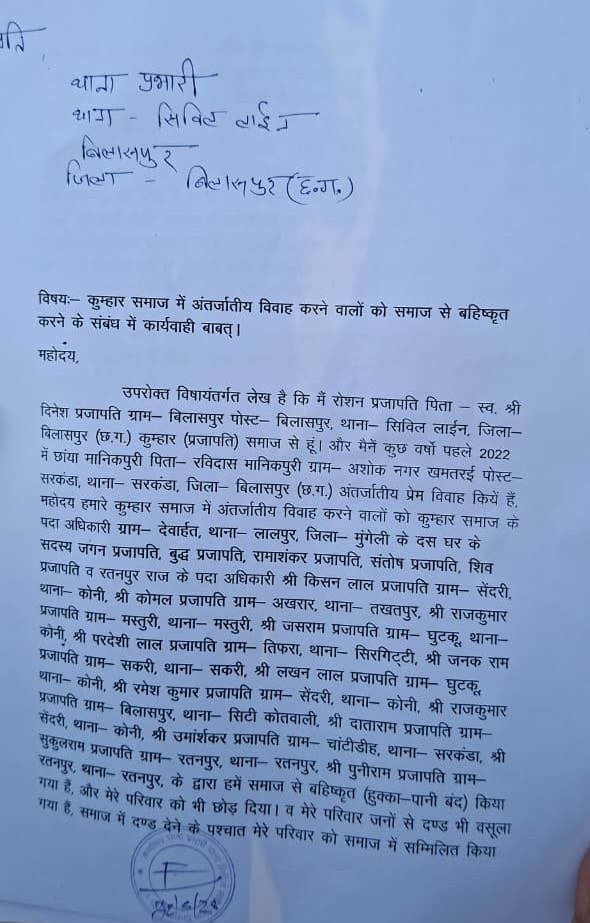 प्रति,
थाना प्रभारी
थाना - सिविल लाईन
बिलासपुर
जिला - बिलासपुर (छ.ग.)
विषयः– कुम्हार समाज में अंतर्जातीय विवाह करने वालों को समाज से बहिष्कृत
करने के संबंध में कार्यवाही बाबत्।
महोदय,
उपरोक्त विषायंतर्गत लेख है कि मैं रोशन प्रजापति पिता – स्व. श्री
दिनेश प्रजापति ग्राम– बिलासपुर पोस्ट– बिलासपुर, थाना– सिविल लाईन, जिला–
बिलासपुर (छ.ग.) कुम्हार (प्रजापति) समाज से हूं। और मैनें कुछ वर्षो पहले 2022
में छांया मानिकपुरी पिता– रविदास मानिकपुरी ग्राम– अशोक नगर खमतरई पोस्ट–
सरकंडा, थाना– सरकंडा, जिला– बिलासपुर (छ.ग.) अंतर्जातीय प्रेम विवाह कियें हैं,
महोदय हमारे कुम्हार समाज में अंतर्जातीय विवाह करने वालों को कुम्हार समाज के
पदा अधिकारी ग्राम– देवार्हत, थाना– लालपुर, जिला– मुंगेली के दस घर के
सदस्य जगन प्रजापति, बुद्ध प्रजापति, रामाशंकर प्रजापति, संतोष प्रजापति, शिव
प्रजापति व रतनपुर राज के पदा अधिकारी श्री किसन लाल प्रजापति ग्राम– सेंदरी,
थाना– कोनी, श्री कोमल प्रजापति ग्राम– अखरार, थाना– तखतपुर, श्री राजकुमार
प्रजापति ग्राम– मस्तुरी, थाना– मस्तुरी, श्री जसराम प्रजापति ग्राम– घुटकू, थाना–
कोनी, श्री परदेशी लाल प्रजापति ग्राम– तिफरा, थाना– सिरगिट्टी, श्री जनक राम
प्रजापति ग्राम– सकरी, थाना– सकरी, श्री लखन लाल प्रजापति ग्राम– घुटकू,
थाना– कोनी, श्री रमेश कुमार प्रजापति ग्राम– सेंदरी, थाना– कोनी, श्री राजकुमार
प्रजापति ग्राम– बिलासपुर, थाना– सिटी कोतवाली, श्री दाताराम प्रजापति ग्राम–
सेंदरी, थाना– कोनी, श्री उमांर्शकर प्रजापति ग्राम– चांटीडीह, थाना– सरकंडा, श्री
सुकुलराम प्रजापति ग्राम– रतनपुर, थाना– रतनपुर, श्री पुनीराम प्रजापति ग्राम–
रतनपुर, थाना– रतनपुर, के द्वारा हमें समाज से बहिष्कृत (हुक्का–पानी बंद) किया
गया हैं, और मेरे परिवार को भी छोड़ दिया। व मेरे परिवार जनों से दण्ड भी वसूला
गया हैं, समाज में दण्ड देने के पश्चात मेरे परिवार को समाज में सम्मिलित किया